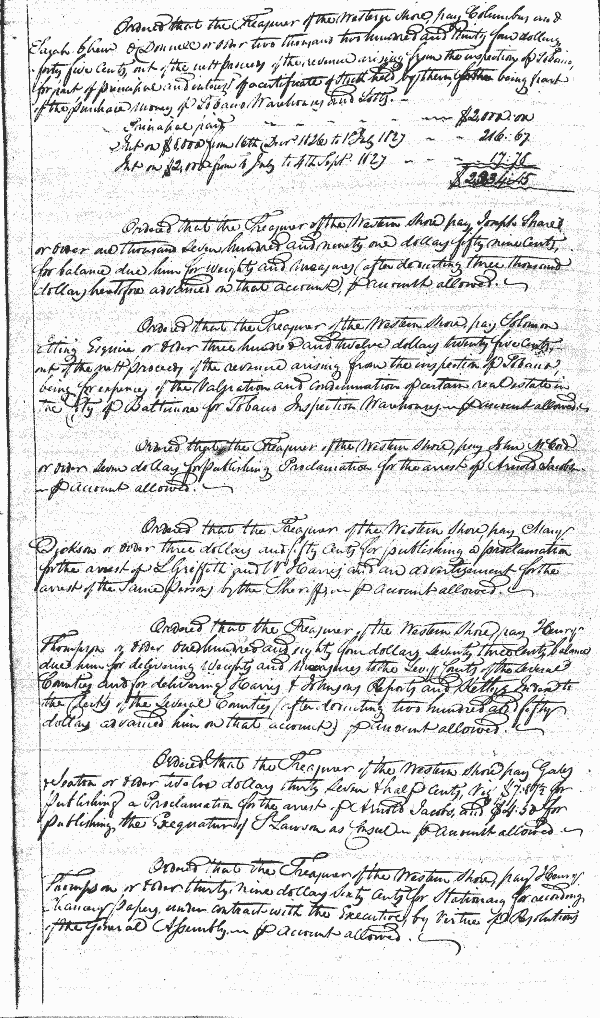 Ordered that the Treasurer of the Western Shore, pay Columbus and
Donnell or order two thousand two hundred and thirty four dollars
forty five Cents, out of the nett proceeds of the revenue arising from the inspection of Tobacco,
for part of principal and interest of certificate of Stock held by them being part
of the purchase money of Tobacco Warehouses and Lotts. -
Principal part - - - - $2,000.00
Int on from 16th Decr 1826 to 1st July 1827 - - 216.67
Int on $2,000 from 1 July to 4th Sept. 1827 - - 17.78
Ordered that the Treasurer of the Western Shore, pay Joseph
or order one thousand Seven hundred and ninety one dollars fifty nine Cents,
for balance due him for Weights and measures (after deducting three thousand
dollars heretofore advanced on that account) p account allowed.
Ordered that the Treasurer of the Western Shore, pay Solomon
Etting Esquire or order three hundred and twelve dollars twenty five Cents,
out of the nett proceeds of the revenue arising from the inspection of Tobacco,
being for expenses of the Valuation and Condemnation of certain real estate in
the City of Baltimore for Tobacco Inspection Warehouses p account allowed.
Ordered that the Treasurer of the Western Shore, pay John
or order Seven dollars for publishing Proclamation for the arrest of Arnold Jacobs
p account allowed.
Ordered that the Treasurer of the Western Shore, pay Mary
Dickson or order three dollars and fifty Cents for publishing a proclamation
for the arrest of Griffith and W Harris and an advertisement for the
arrest of the Same Persons by the Sheriff p account allowed.
Ordered that the Treasurer of the Western Shore, pay Henry
Thompson or order One hundred and eighty four dollars Seventy three Cents, balance
due him for delivering Weights and measures to the Levy Courts of the Several
Counties and for delivering Harris & Johnsons Reports and Index to
the Clerks of the Several Counties (after deducting two hundred and fifty
dollars advanced him on that account) p account allowed.
Ordered that the Treasurer of the Western Shore pay Gales
& Seaton or order twelve dollars thirty Seven & half Cents, Viz $7.87½ for
publishing a Proclamation for the arrest of Arnold Jacobs, and $4.50 for
publishing the Exequature of Lawson as Consul p account allowed.
Ordered that the Treasurer of the Western Shore, pay Henry
Thompson or order thirty nine dollars Sixty Cents for Stationary for
Chancery papers under contract with the Executive by Virtue of Resolutions
of the General Assembly p account allowed.